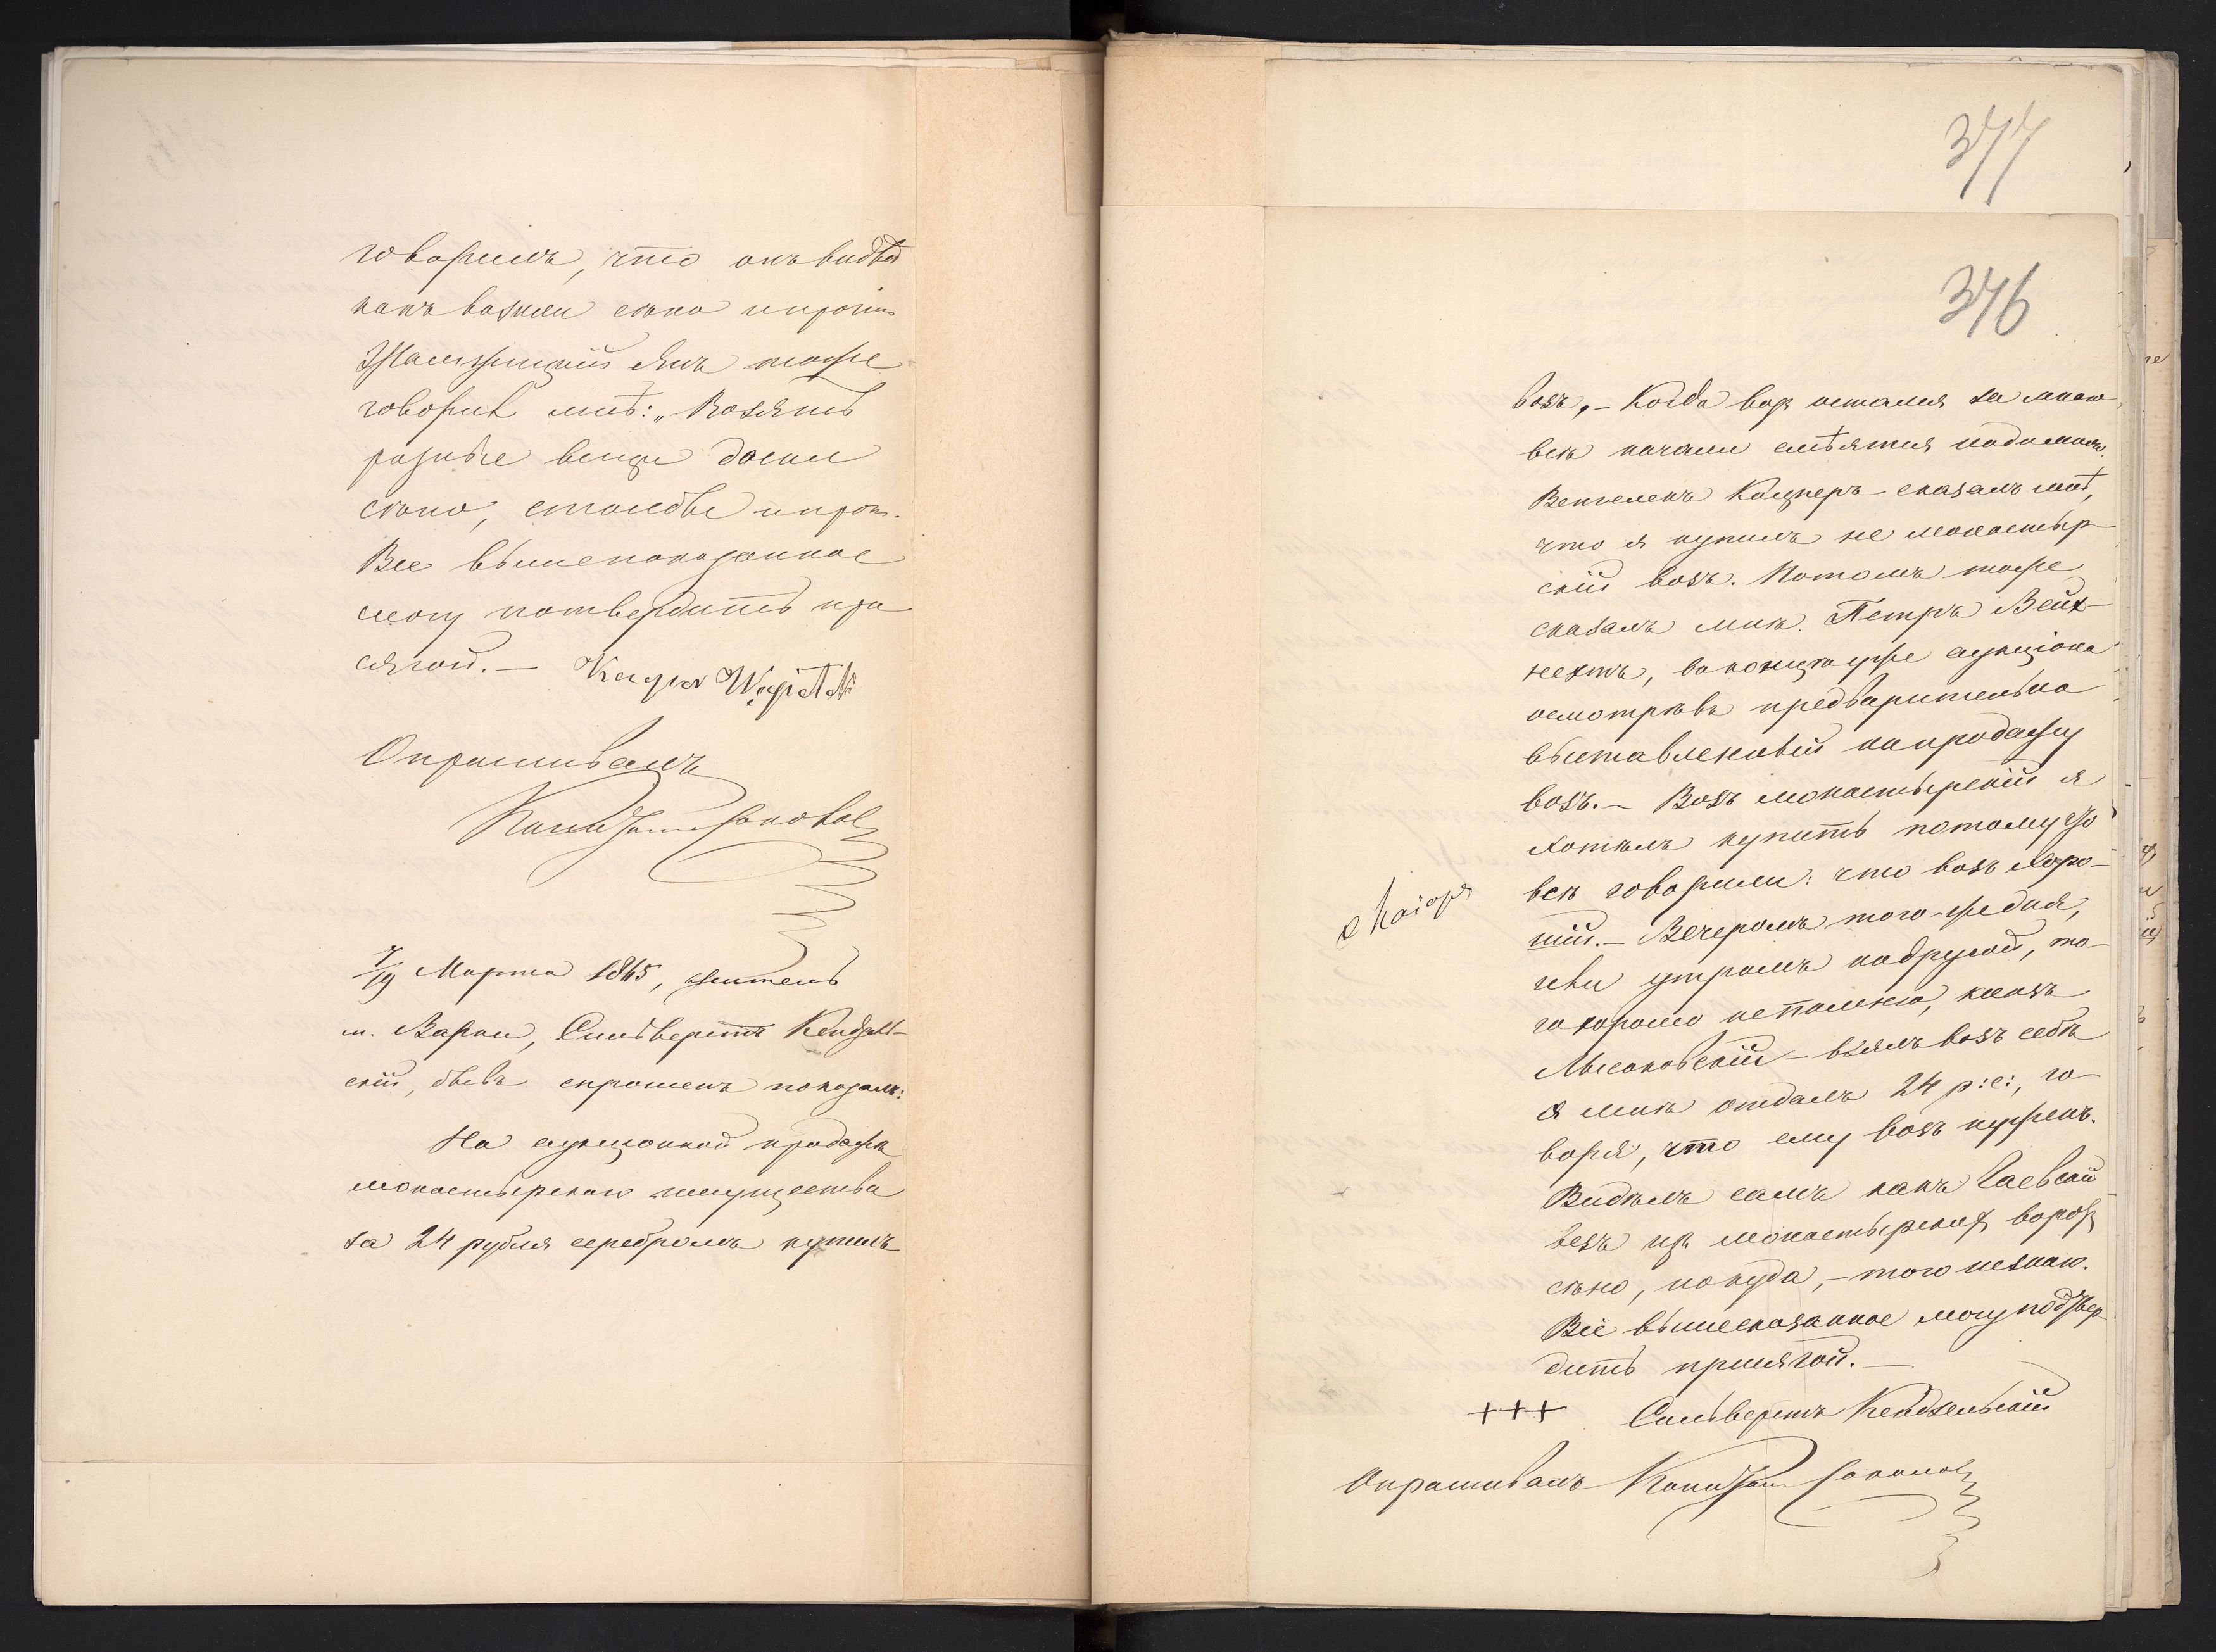 говорилъ, что онъ видѣлъ
какъ возили сѣно и прочіе
Янъ тоже
говорилъ мнѣ: „Возятъ
разные вещи доски
сѣно, столбы и проч.
Все вышепоказанное
могу потвердить при
сягой. —
Опрашивалъ
7/19 Марта 1865, житель
м. Варки, Сильверстъ
скій, бывъ спрошенъ показалъ:
На аукціонной продажѣ
монастырскаго имущества
за 24 рубля серебромъ купилъ
377
376
возъ, — Когда возъ остался за мною
всѣ начали смѣятся надо мною.
сказалъ мнѣ,
что я купилъ не монастыр-
скій возъ. Потомъ тоже
сказалъ мнѣ. Петръ Вейх-
нехтъ, въ концѣ уже аукціона
осмотрѣвъ предварительно
выставленный на продажу
возъ. — Возъ монастырскій я
хотѣлъ купить потому что
всѣ говорили: что возъ хоро-
шій. — Вечеромъ того-же дня,
или утромъ на другой, то-
го хорошо не помню,
Мысаковскій — взялъ возъ себѣ
а мнѣ отдалъ 24 р: с:, го-
воря, что ему возъ нуженъ.
Видѣлъ самъ какъ Гаевскій
везъ изъ монастырскихъ
сѣно, но куда, — того не знаю.
Всё вышесказанное могу подтвер-
дить присягой. —
+++ Сильверстъ Кендзельскій
Опрашивалъ